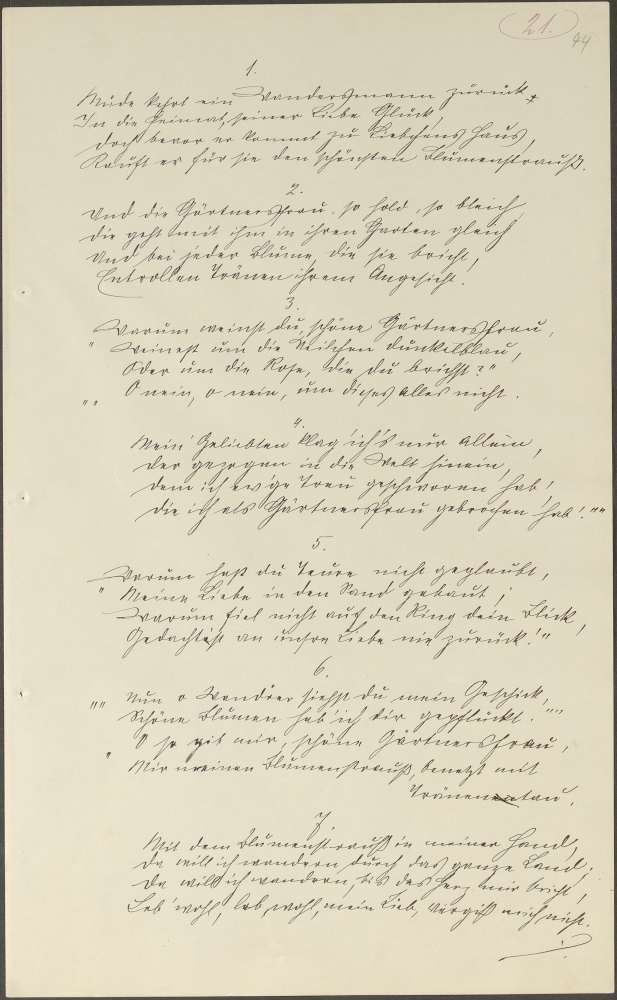 21.
44
1.
Müde kehrt ein Wandersmann zurück
In die Heimat, seiner Liebe Glück,
doch bevor er kommt zu Liebchens Haus,
Kauft er für sie den schönsten Blumenstrauß.
2.
Und die Gärtnersfrau, so hold, so bleich,
die geht mit ihm in ihren Garten gleich
Und bei jeder Blume, die sie bricht,
Entrollen Tränen ihrem Angesicht.
3.
"Warum weinst du, schöne Gärtnersfrau,
Weinest um die Veilchen dunkelblau,
Oder um die Rose, die du brichst?"
"" O nein, o nein, um dieses Alles nicht.
4.
Mein' Geliebten klag' ich's nur allein,
der gezogen in die Welt hinein,
dem ich ew'ge Treu geschworen hab'
die ich als Gärtnersfrau gebrochen hab'.""
5.
"Warum hast du Teure nicht geglaubt,
Meine Liebe in den Sand gebaut;
Warum fiel nicht auf den Ring dein Blick,
Gedachtest an unsre Liebe nie zurück!"
6.
"" Nun o Wandrer siehst du mein Geschick,
Schöne Blumen hab' ich dir gepflückt.""
" O so gib mir, schöne Gärtnersfrau,
Mir meinen Blumenstrauß, benetzt mit
Tränentau.
7.
Mit dem Blumenstrauß in meiner Hand,
Da will ich wandern durch das ganze Land;
Da will ich wandern, bis das Herz mir bricht,
Leb' wohl, leb wohl, mein Lieb, vergiß mich nicht.